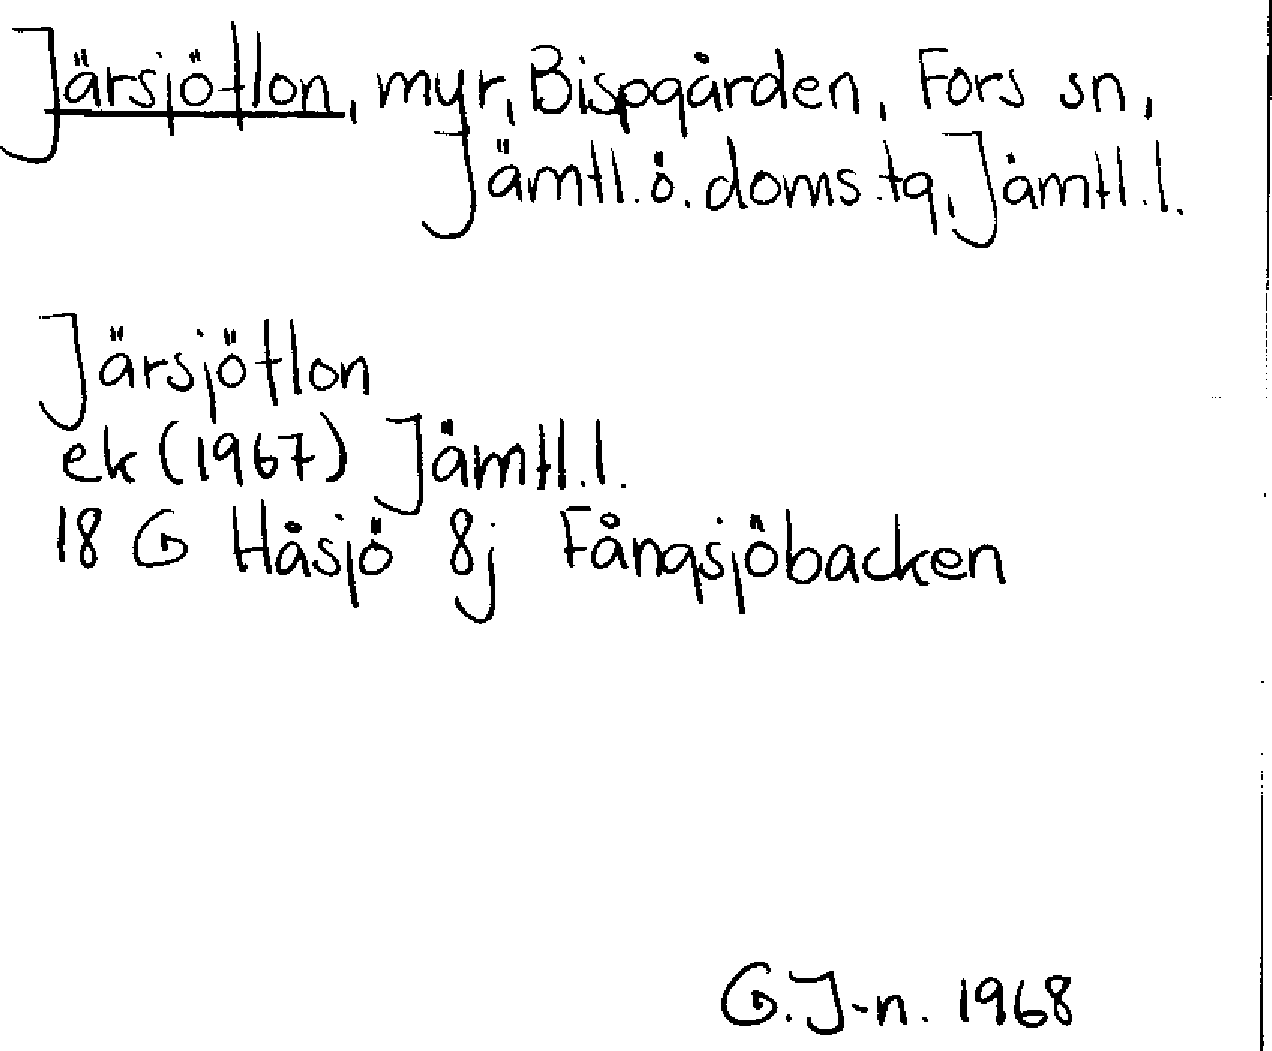 Järsjöflon, myr, Bispgården, Fors sn,
Jämtl. ö. doms.tg, Jämtl.l.
Järsjöflon
ek (1967) Jämtl.l.
18 G Håsjö 8j Fångsjöbacken
G. J-n. 1968